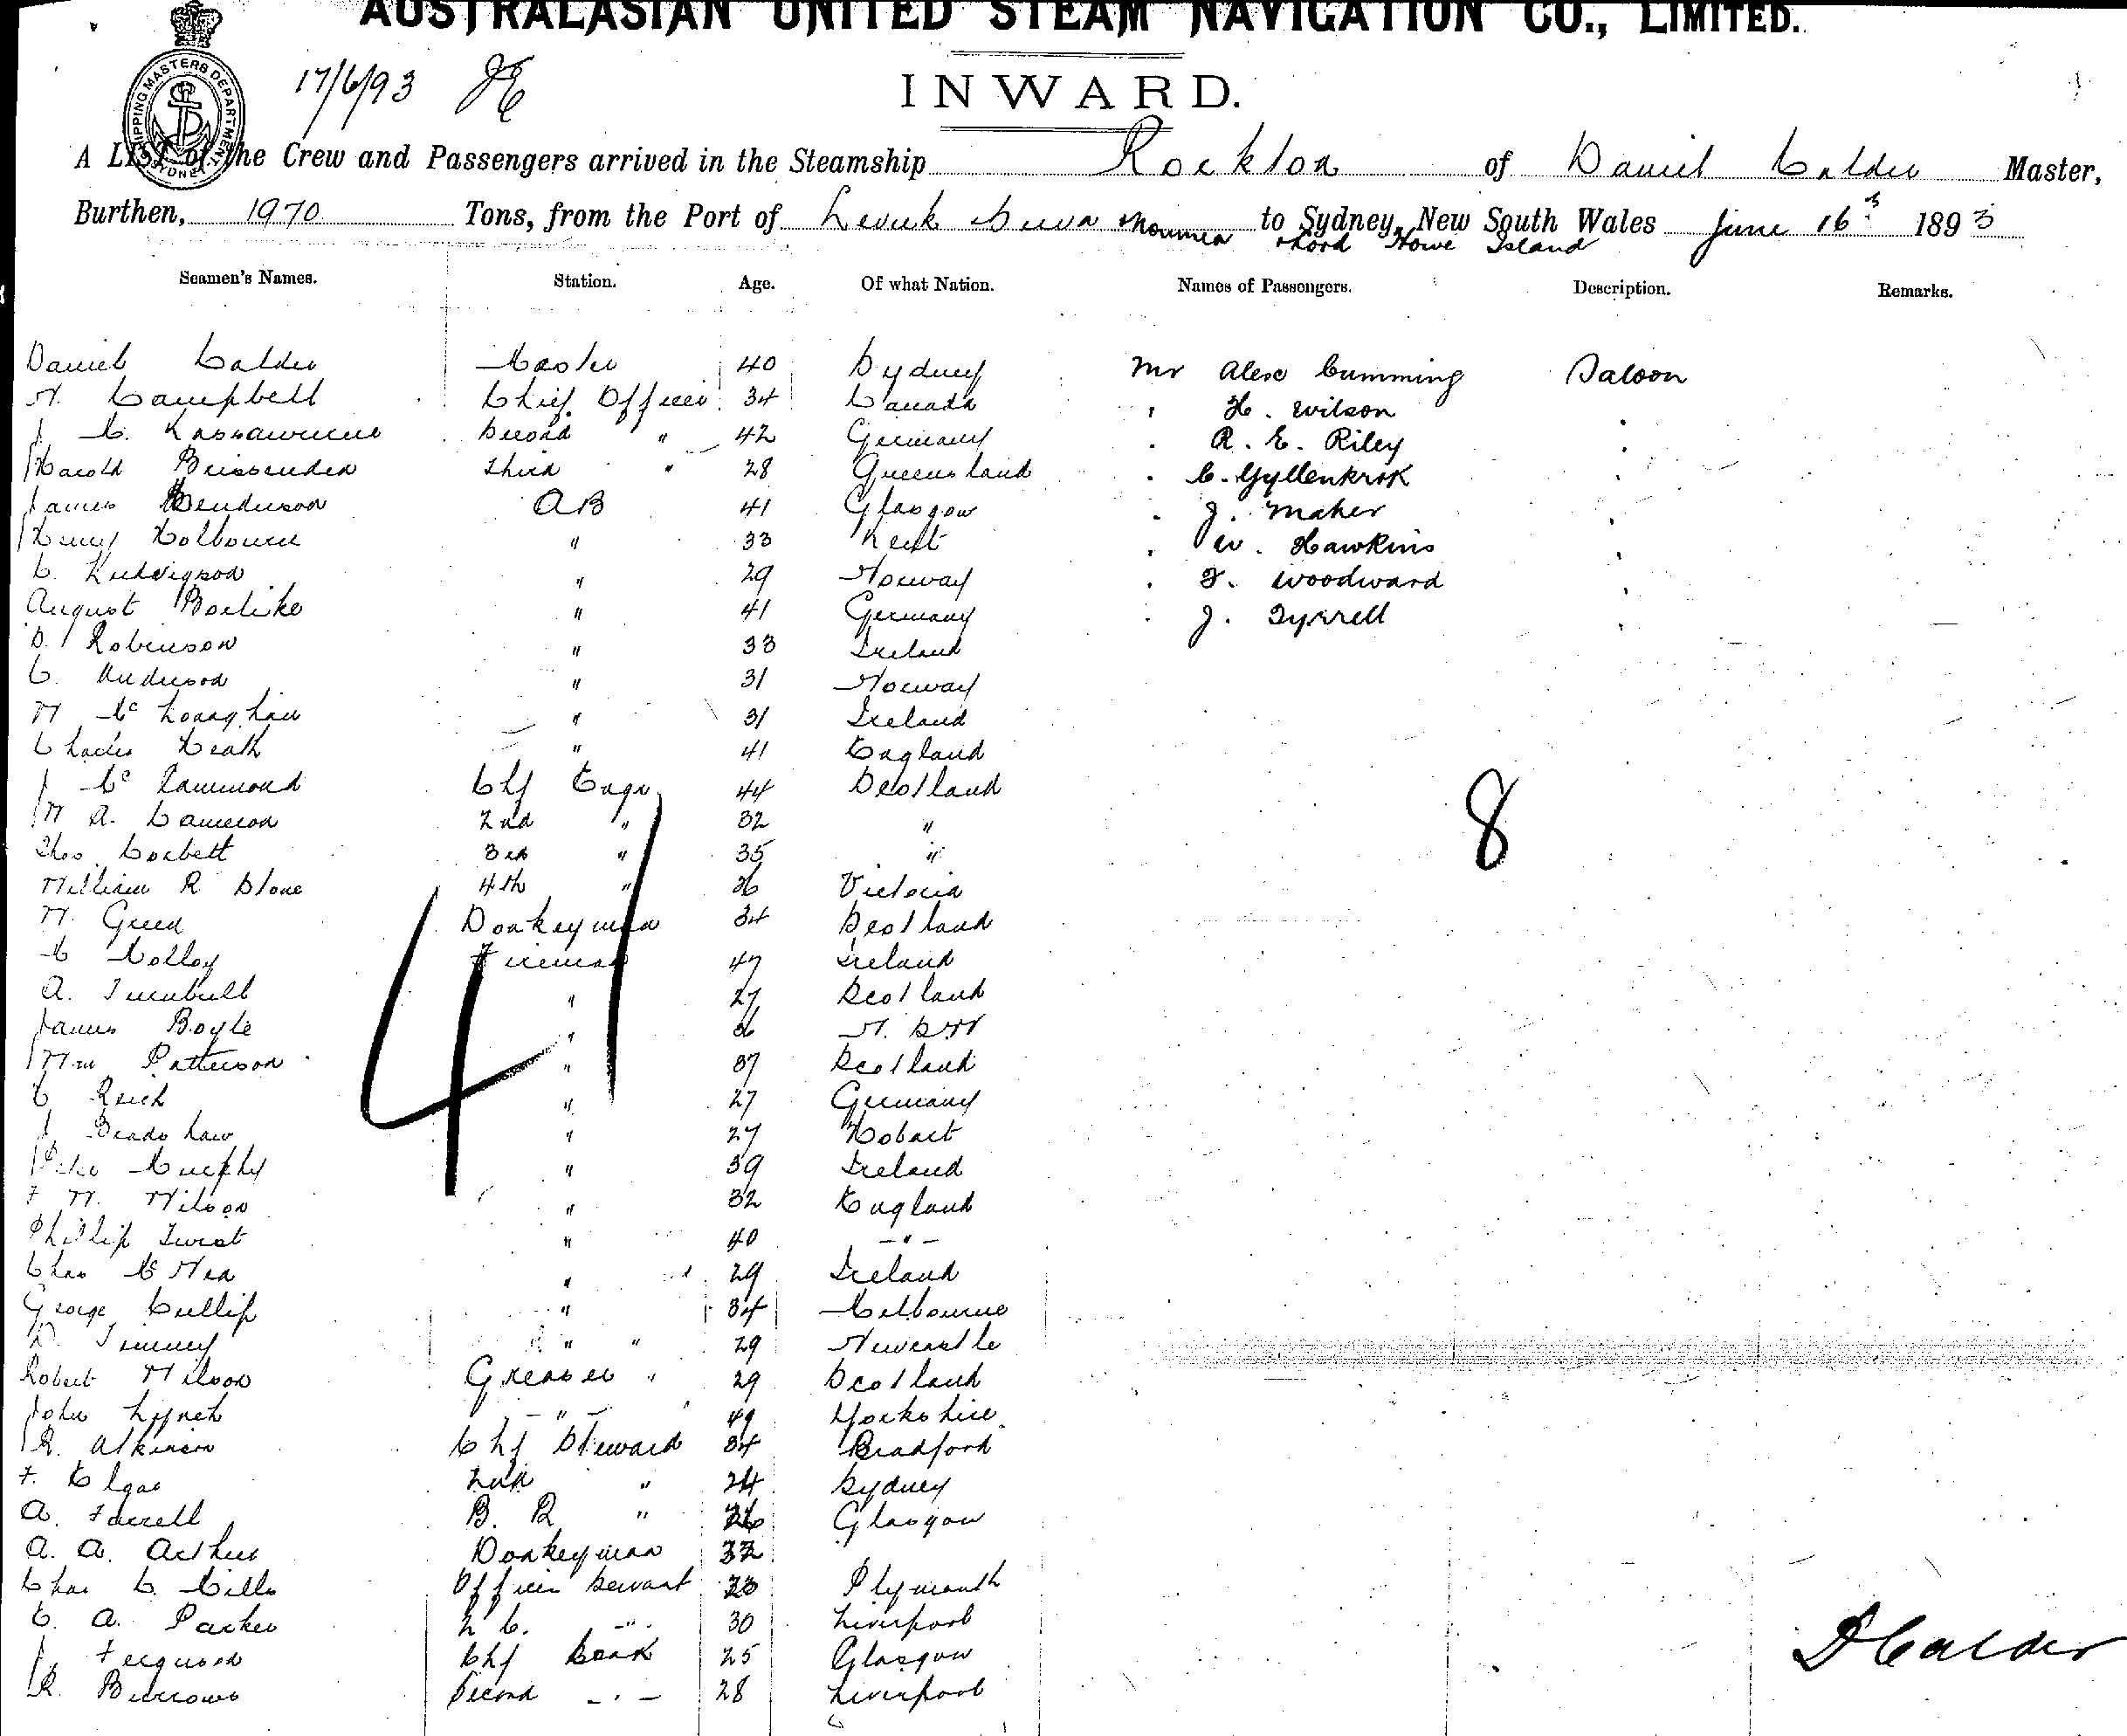 AUSTRALASIAN UNITED STEAM NAVIGATION CO., LIMITED.
SHIPPING MASTERS DEPARTMENT SYDNEY
17/6/93
INWARD.
A LIST of the Crew and Passengers arrived in the Steamship Rockton of Daniel Calder Master,
Burthen, 1970 Tons, from the Port of Levuk Suva & Noumea & Lord Howe Island to Sydney, New South Wales June 16th 1893
Seamen's Names. Station. Age. Of what Nation. Names of Passengers. Description. Remarks.
Daniel Calder Master 40 Sydney Mr Alex Cumming Saloon
W. Campbell Chief Officer 34 Canada " H. Wilson "
J. M. Second " 42 Germany " R. E. Riley "
Harold Brissenden Third " 28 Queensland " C. Gyllenkrok "
James Henderson AB 41 Glasgow " J. Maher "
Henry Holbourn " 33 Kent " W. Hawkins "
C. Ludvigson " 29 Norway " F. Woodward "
August " 41 Germany " J. Tyrrell "
D. Robinson " 33 Ireland
C. Anderson " 31 Norway
W Mc Loughlin " 31 Ireland
Charles Heath " 41 England
J Mc Lammond Chf Engr 44 Scotland
W A. Cameron 2nd " 32 "
Thos. Corbett 3rd " 35 "
William R Stone 4th " 26 Victoria
W. Green Donkeyman 34 Scotland
M Molloy Fireman 47 Ireland
A. Turnbull " 27 Scotland
James Boyle " 26 N. S. W
Wm Patterson " 37 Scotland
C Reich " 27 Germany
J. Bradshaw " 27 Hobart
Peter Murphy " 39 Ireland
F W. Wilson " 32 England
Phillip Twist " 40 "
Chas Mc Nea " 29 Ireland
George Cullip " 34 Melbourne
D. Timmey " " 29 Newcastle
Robert Wilson Greaser " 29 Scotland
John Lynch " 49 Yorkshire
R. Atkinson Chf Steward 34 Bradford
F. Elgar 2nd " 24 Sydney
A. Farrell B. R " 26 Glasgow
A. A. Arthur Donkeyman 32
Chas C. Mills Officers Servant Plymouth
C. A. Parker 2 C. " 30 Liverpool
J. Ferguson Chf Cook 25 Glasgow
R. Burrows Second " 28 Liverpool
41
8
D Calder